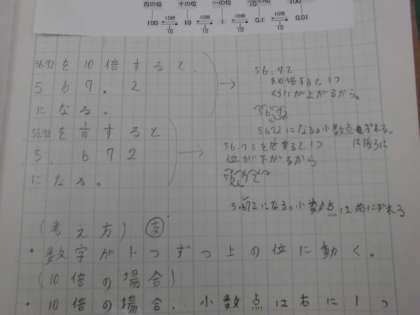 百の位 十の位 一の位 1/10の位 1/100
100 10 1 0.1 0.01
56.72を10倍すると
567.2
になる。
56.72を1/10すると
5.672
になる。
56.72
10倍すると1つ
くらいが上がるから。
になる。小数点
は後ろに
56.72を
すると1つ
位が下がるから
5.672になる。小数点は前にずれる
(考え方)
・数字が1つずつ上の位に動く。
(10倍の場合)
・10倍の場合、小数点は右に1つ